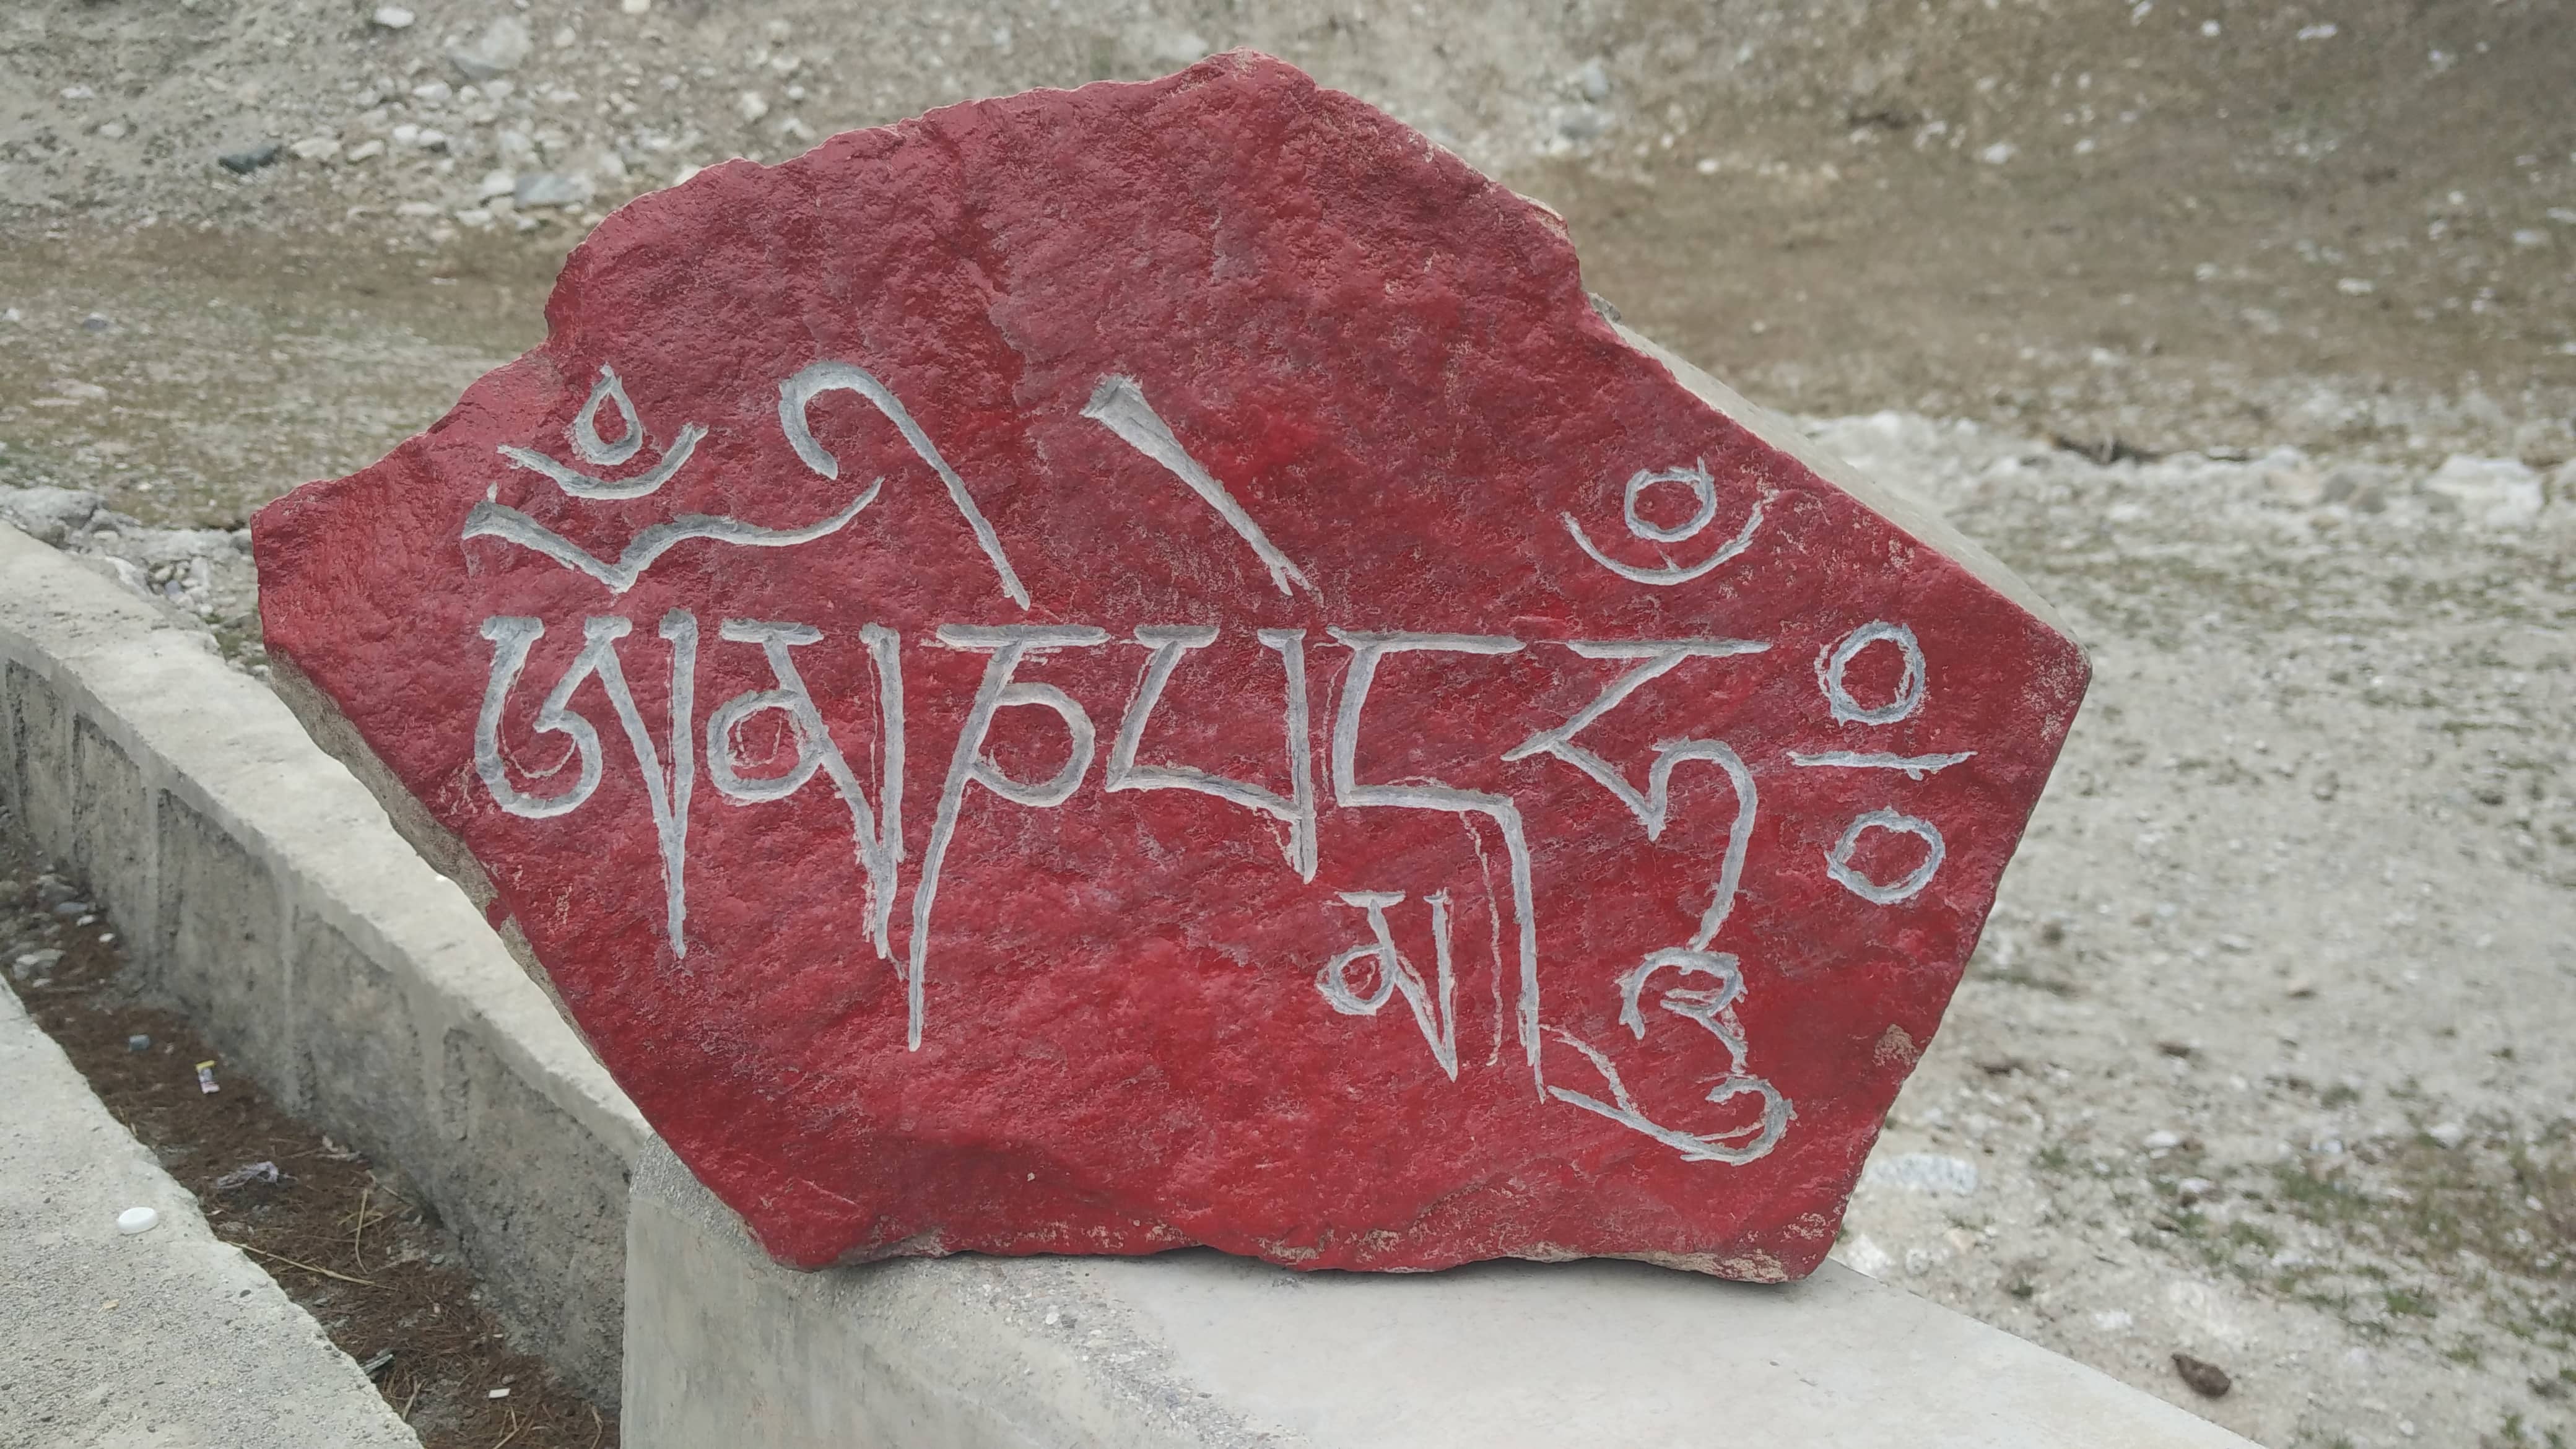 ཨོཾ་མ་ཎི་པདྨེ་ཧཱུྃ༔